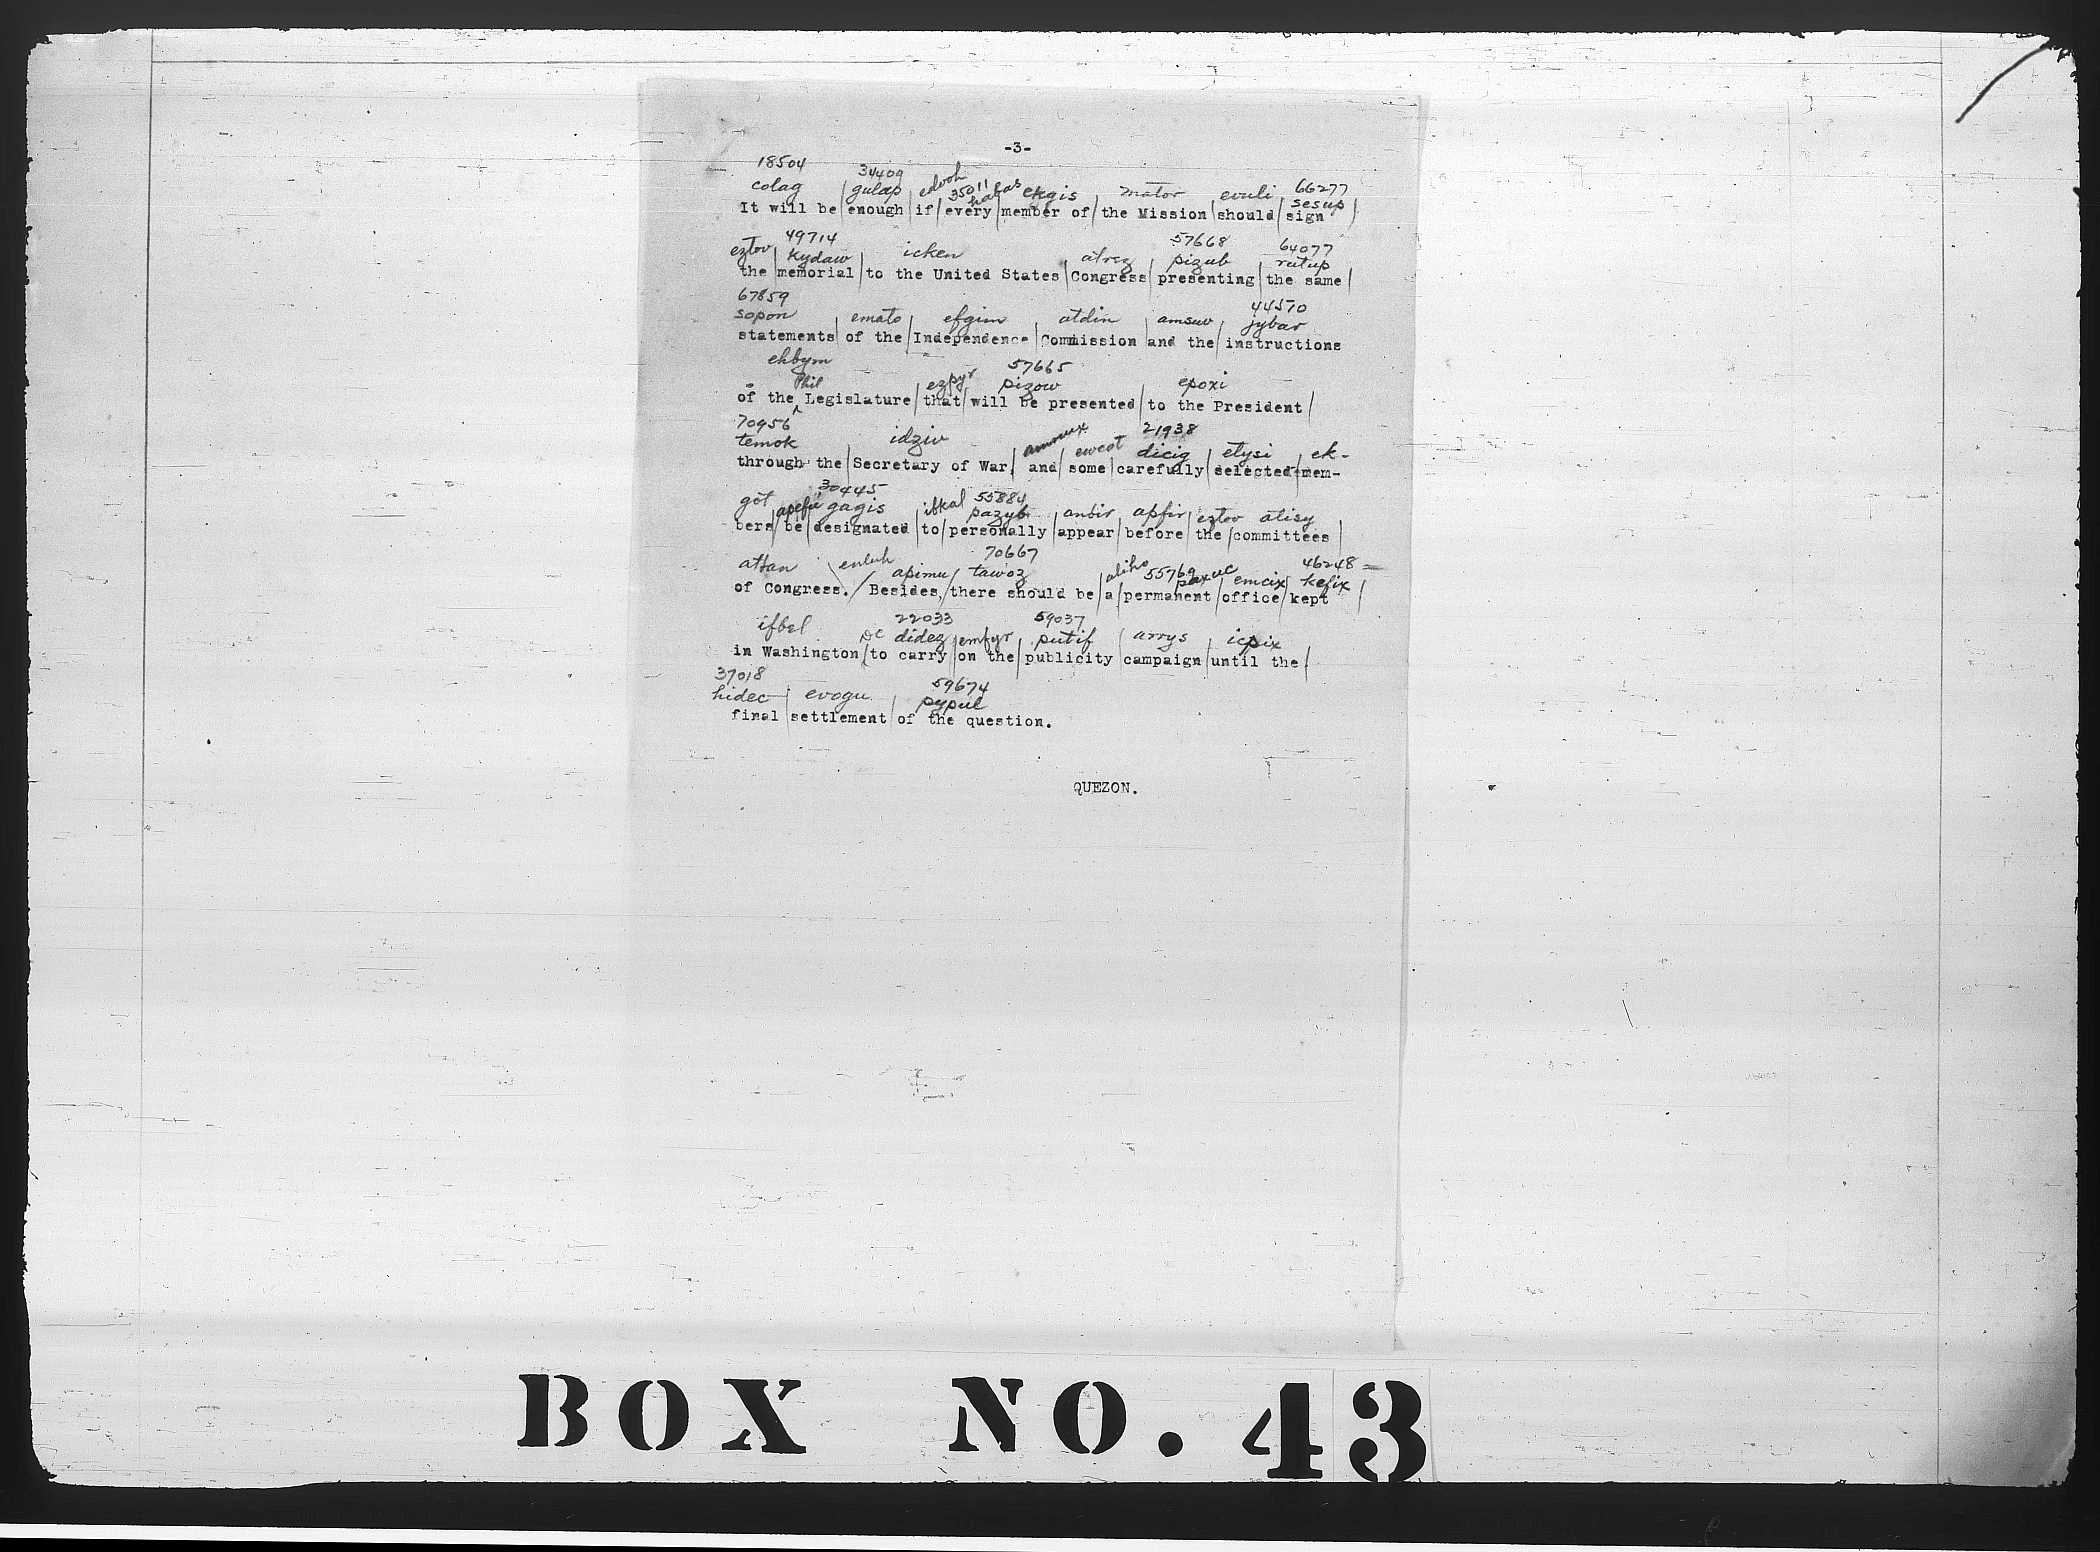 -3-
18504 34409 35011 66277
colag gulap edvoh ekgis mator evuli sesup
It will be/enough/if/every/member of/the Mission/should/sign/
49714 57668 64077
eztov kydaw icken atrez pizub rutup
the/memorial/to the United States/Congress/presenting/the same/
67859 44570
sopon emato efgim atdin amsuv jybar
statements/of the/Independence/Commission/and the/instructions
ehbym 57665
Phil ezpyr pizow epoxi
of the ^ Legislature/that/will be presented/to the President/
70956 21938
temok idziv ewcot dicig etysi ek-
through the/Secretary of War,/and/some/carefully/selected/mem-
30445 55884
got apefu gagis ibkal pazyb anbir apfir eztov atisy
bers/be/designated/to/personally/appear/before/the/committees/
70667 46248 =
attan enluh apimu tawoz aliho 55769 paxuc emcix kefix
of Congress./Besides,/there should be/a/permanent/office/kept/
22033 59037
ifbel DC didez emfyr putif arrys icpix
in Washington/to carry/on the/publicity/campaign/until the/
37018 59674
hidec evogu pypul
final/settlement/of the question.
QUEZON.
BOX NO. 43